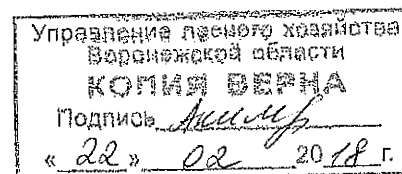 Управление лесного хозяйства
Воронежской области
КОПИЯ ВЕРНА
Подпись
« 22 » 02 2018 г.